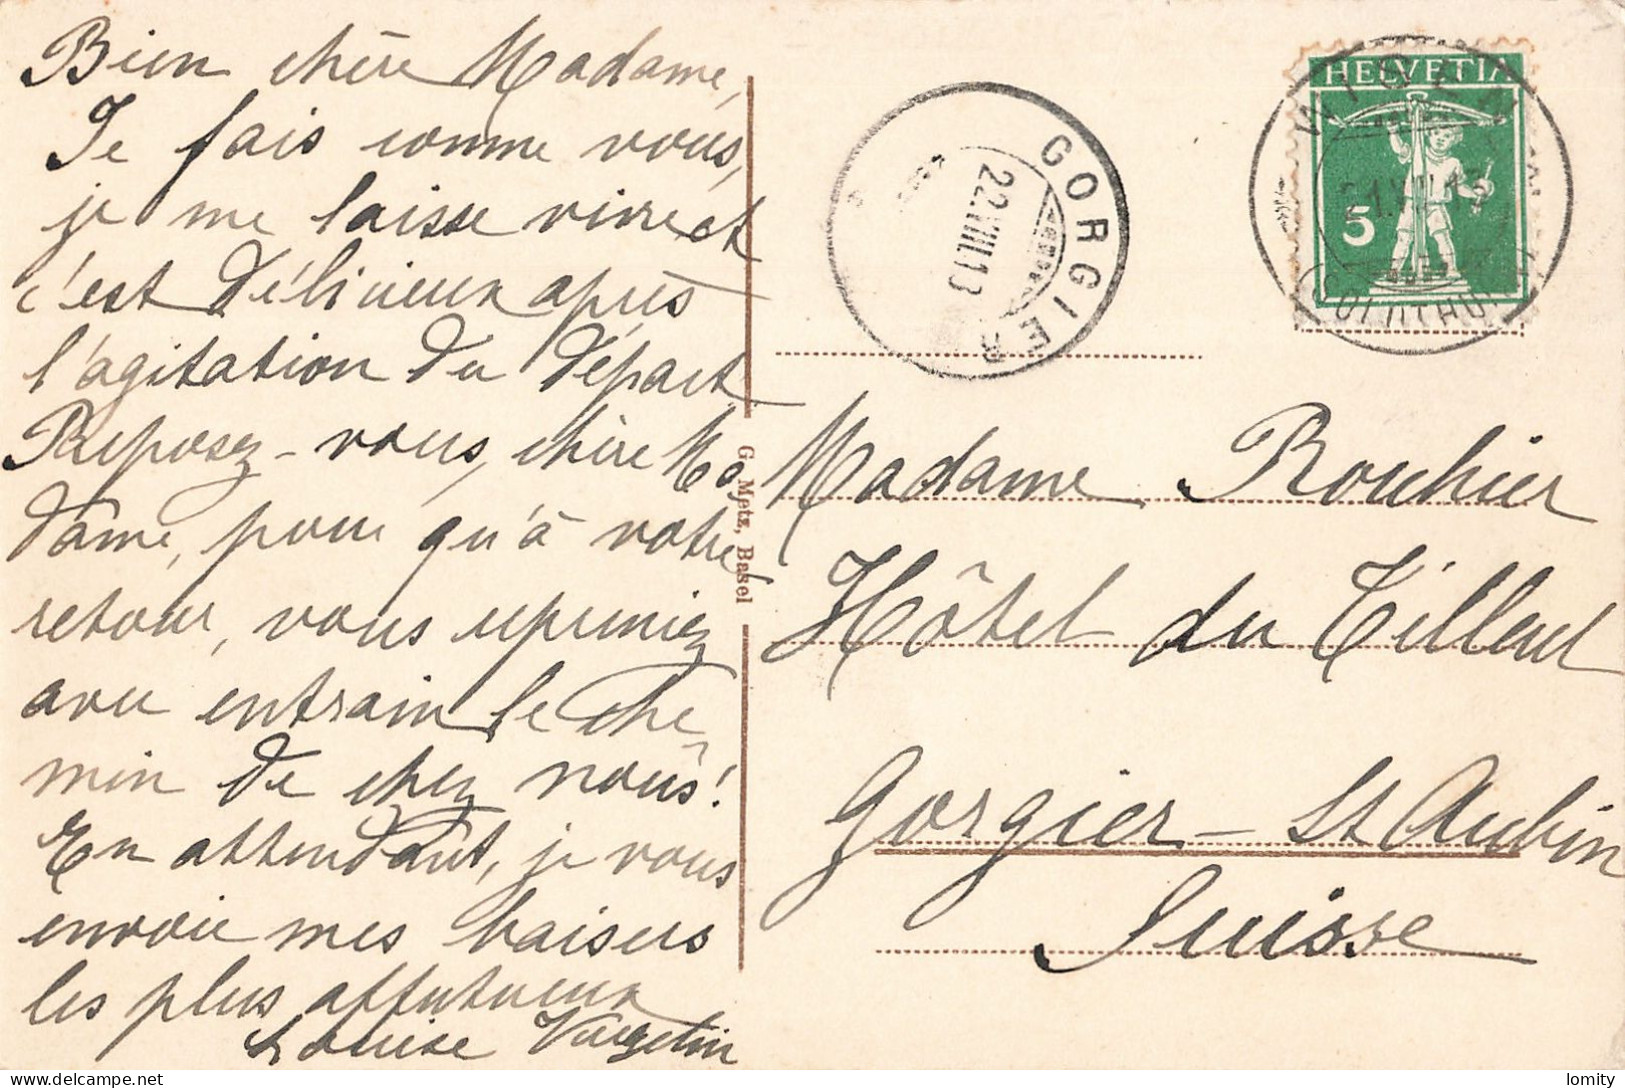 Bien chère Madame,
Je fais comme vous,
je me laisse vivre et
c'est délicieux après
l'agitation du départ
Reposez-vous, chère Ma
dame, pour qu'à votre
retour, vous repreniez
avec entrain le che-
min de chez nous!
En attendant, je vous
envoie mes baisers
les plus affectueux
Louise
G. Metz, Basel
GORGIER
22.VIII.13
HELVETIA
5
WISEN
(SOLOTHURN)
Madame Rouhier
Hôtel du Tilleul
Gorgier - St Aubin
Suisse
delcampe.net
lomity